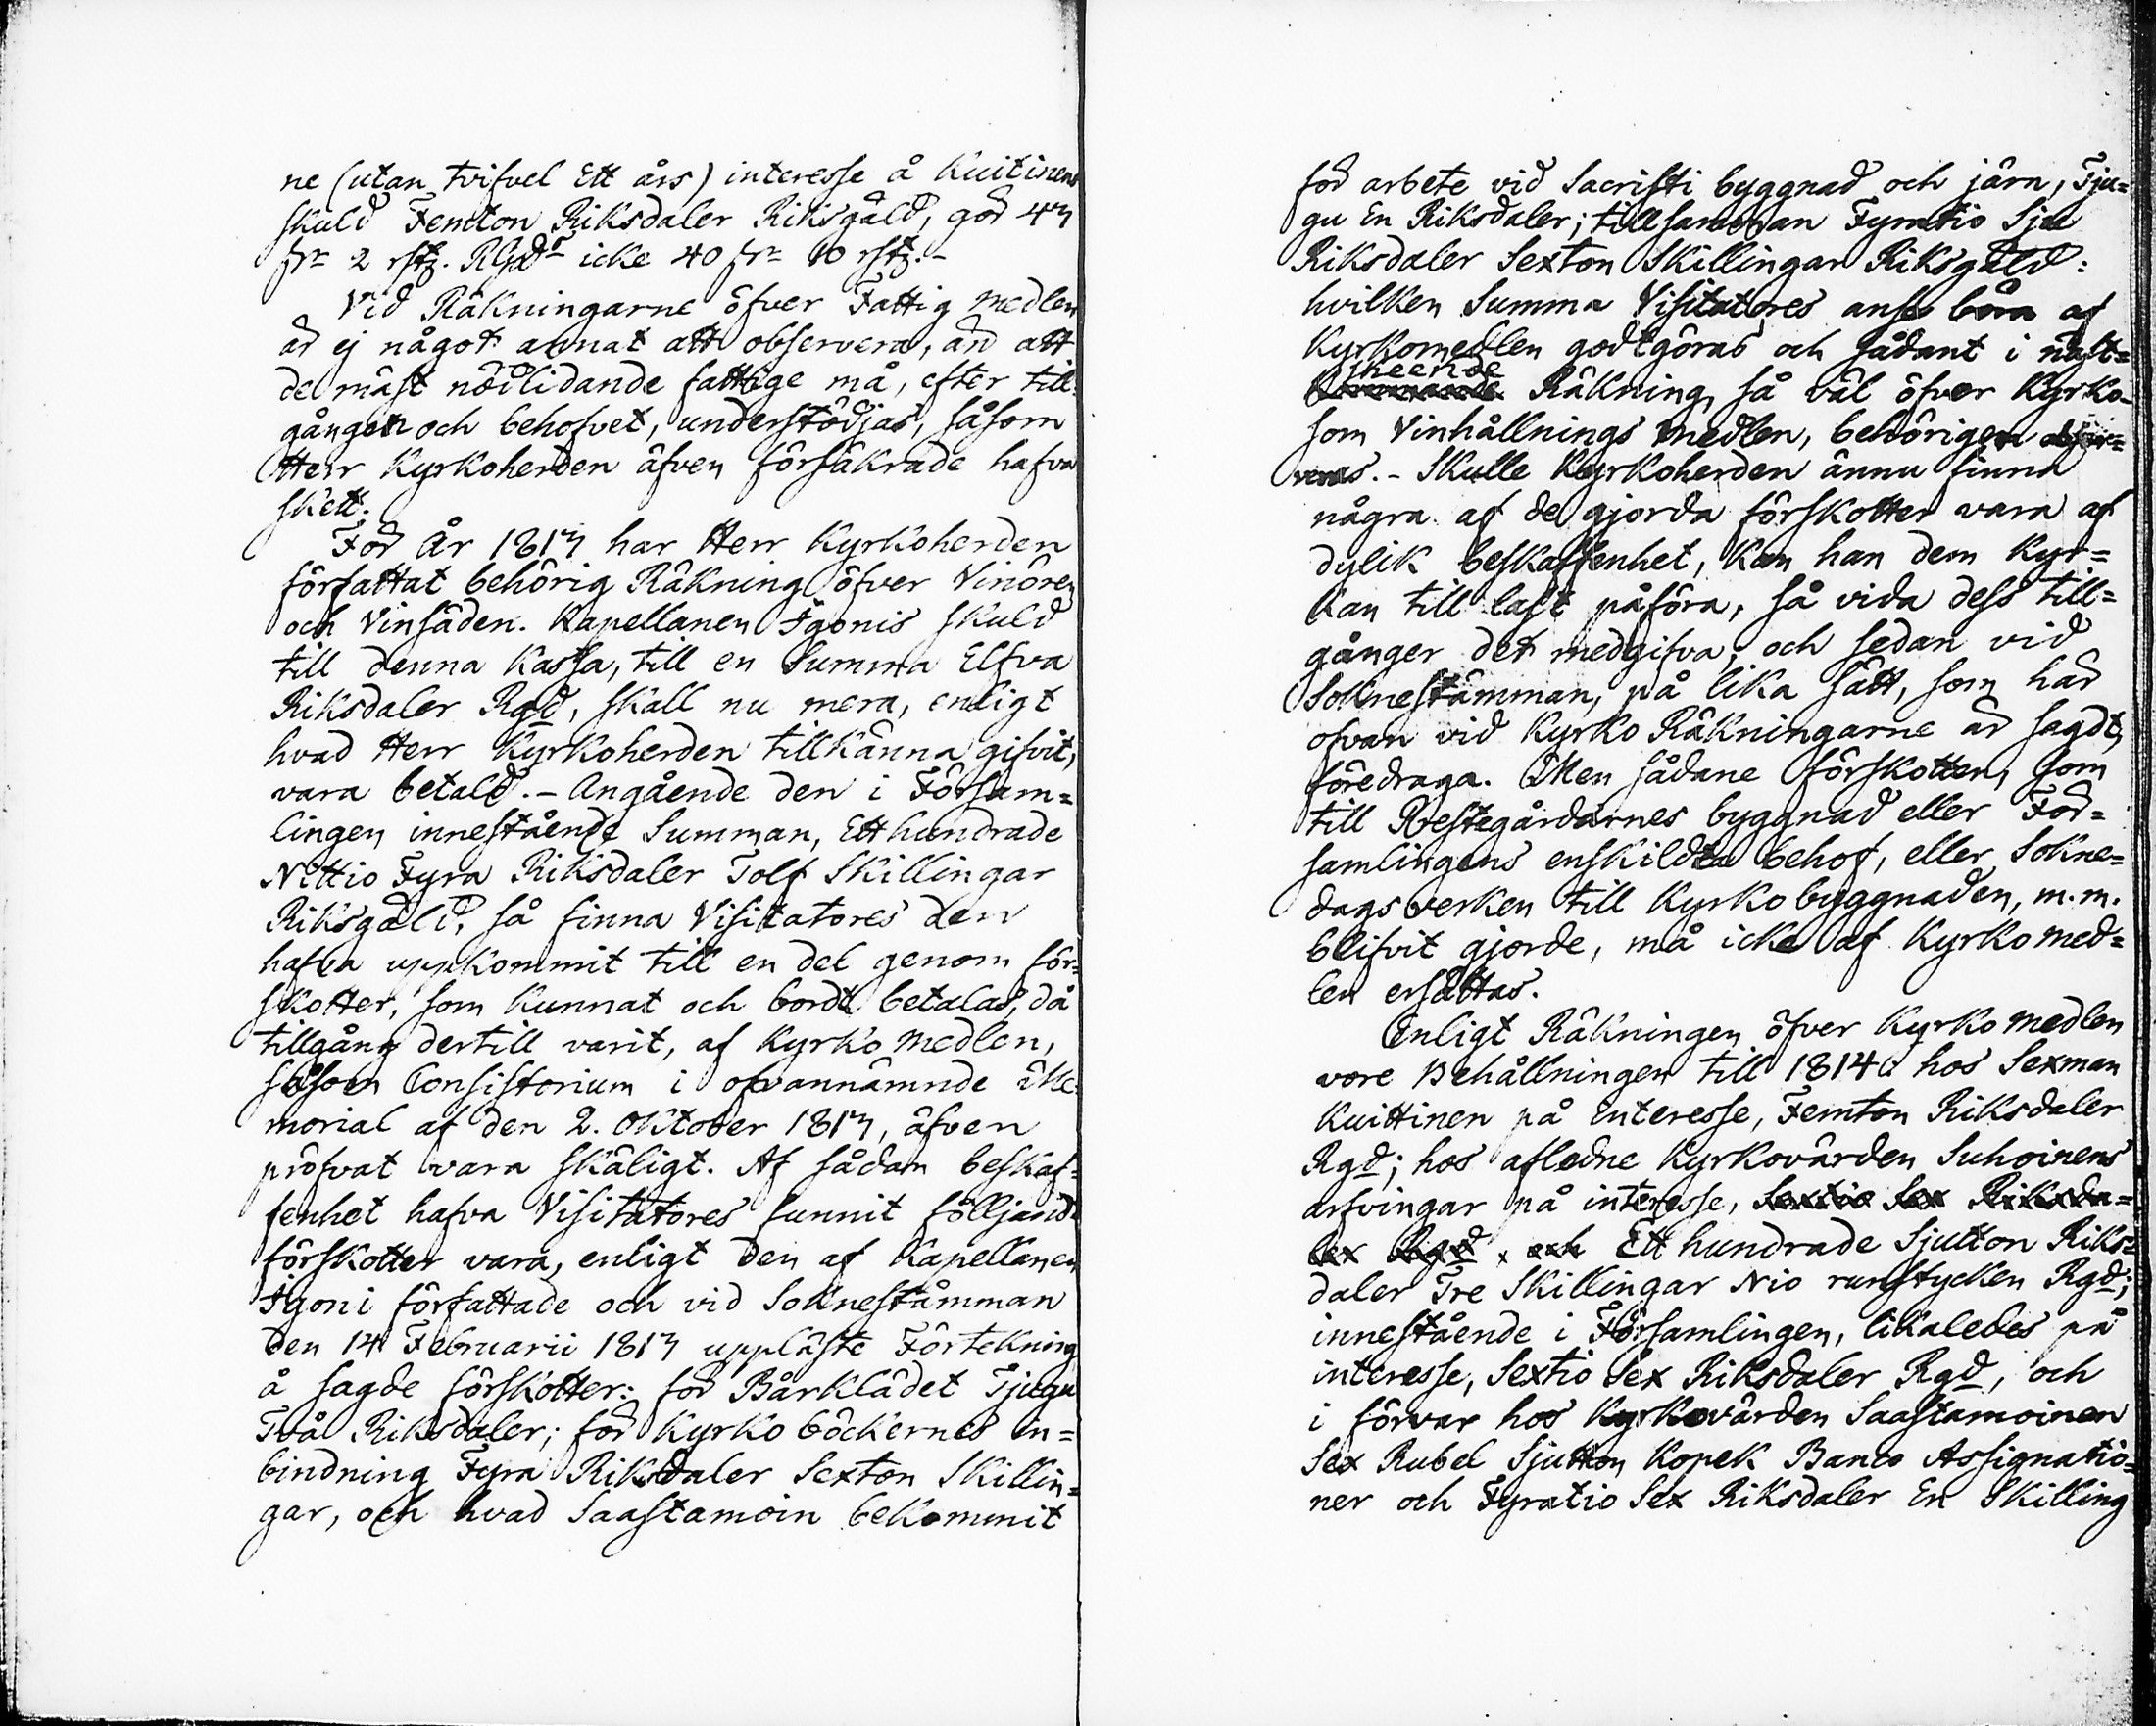 ne (utan tvifvel Ett års) interesse å Kuitinens
skuld Femton Riksdaler Riksgäld, gör 47
2 rstz. icke 40 10 rstz. -
Vid Räkningarne öfver Fattig medlen
är ej något annat att observera, än att
de mäst nödlidande fattige må, efter till
gången och behofvet, understödjas, såsom
Herr Kyrkoherden äfven försäkrade hafva
skett.
För År 1817 har Herr Kyrkoherden
författat behörig Räkning öfver Vinören
och Vinsäden. Kapellanen Igonis skuld
till denna Kassa, till en Summa Elfva
Riksdaler Rgd, skall nu mera, enligt
hvad Herr Kyrkoherden tillkänna gifvit,
vara betald. - Angående den i Försam=
lingen innestående Summan, Ett hundrade
Nittio Fyra Riksdaler Tolf Skillingar
Riksgäld, så finna Visitatores den
hafva uppkommit till en del genom för=
skotter, som kunnat och bordt betalas, då
tillgång dertill varit, af Kyrko medlen,
såsom Consistorium i ofvannämnde Me
morial af den 2. Oktober 1817, äfven
pröfvat vara skäligt. Af sådan beskaf=
fenhet hafva Visitatores funnit följande
förskotter vara, enligt den af Kapellanen
Igoni författade och vid Soknestämman
den 14 Februarii 1817 uppläste Förtekning
å sagde förskotter: för Bårklädet Tjugu
Två Riksdaler; för Kyrko böckernes in=
bindning Fyra Riksdaler Sexton Skillin=
gar, och hvad Saastamoin bekommit
för arbete vid Sacristi byggnad och järn, Tju=
gu En Riksdaler; tillsamman Fyratio Sju
Riksdaler Sexton Skillingar Riksgäld:
hvilken Summa Visitatores anse böra af
Kyrkomedlen godtgöras och sådant i näst=
skeende
Räkning, så väl öfver Kyrko-
som Vinhållnings medlen, behörigen obser=
veras. - Skulle Kyrkoherden ännu finna
några af de gjorda förskotter vara af
dylik beskaffenhet, kan han dem Kyr=
kan till last påföra, så vida dess till=
gånger det medgifva, och sedan vid
Soknestämman, på lika sätt, som här
ofvan vid Kyrko Räkningarne är sagdt,
föredraga. Men sådane förskotter, som
till Prestegårdarnes byggnad eller För=
samlingens enskildta behof, eller Sokne=
dagsverken till Kyrko byggnaden, m.m.
blifvit gjorde, må icke af Kyrko med=
len ersättas.
Enligt Räkningen öfver Kyrko medlen
vore Behållningen till 1814 hos Sexman
Kuittinen på Interesse, Femton Riksdaler
Rgd; hos afledne Kyrkovärden Suhoinens
arfvingar på interesse, Sextio Sex Riksda=
ler Rgd, och Ett hundrade Sjutton Riks=
daler Tre Skillingar Nio runstycken Rgd;
innestående i Församlingen, likaledes på
interesse, Sextio Sex Riksdaler Rgd, och
i förvar hos Kyrkovärden Saastamoinen
Sex Rubel Sjutton Kopek Banco Assignatio=
ner och Fyratio Sex Riksdaler En Skilling